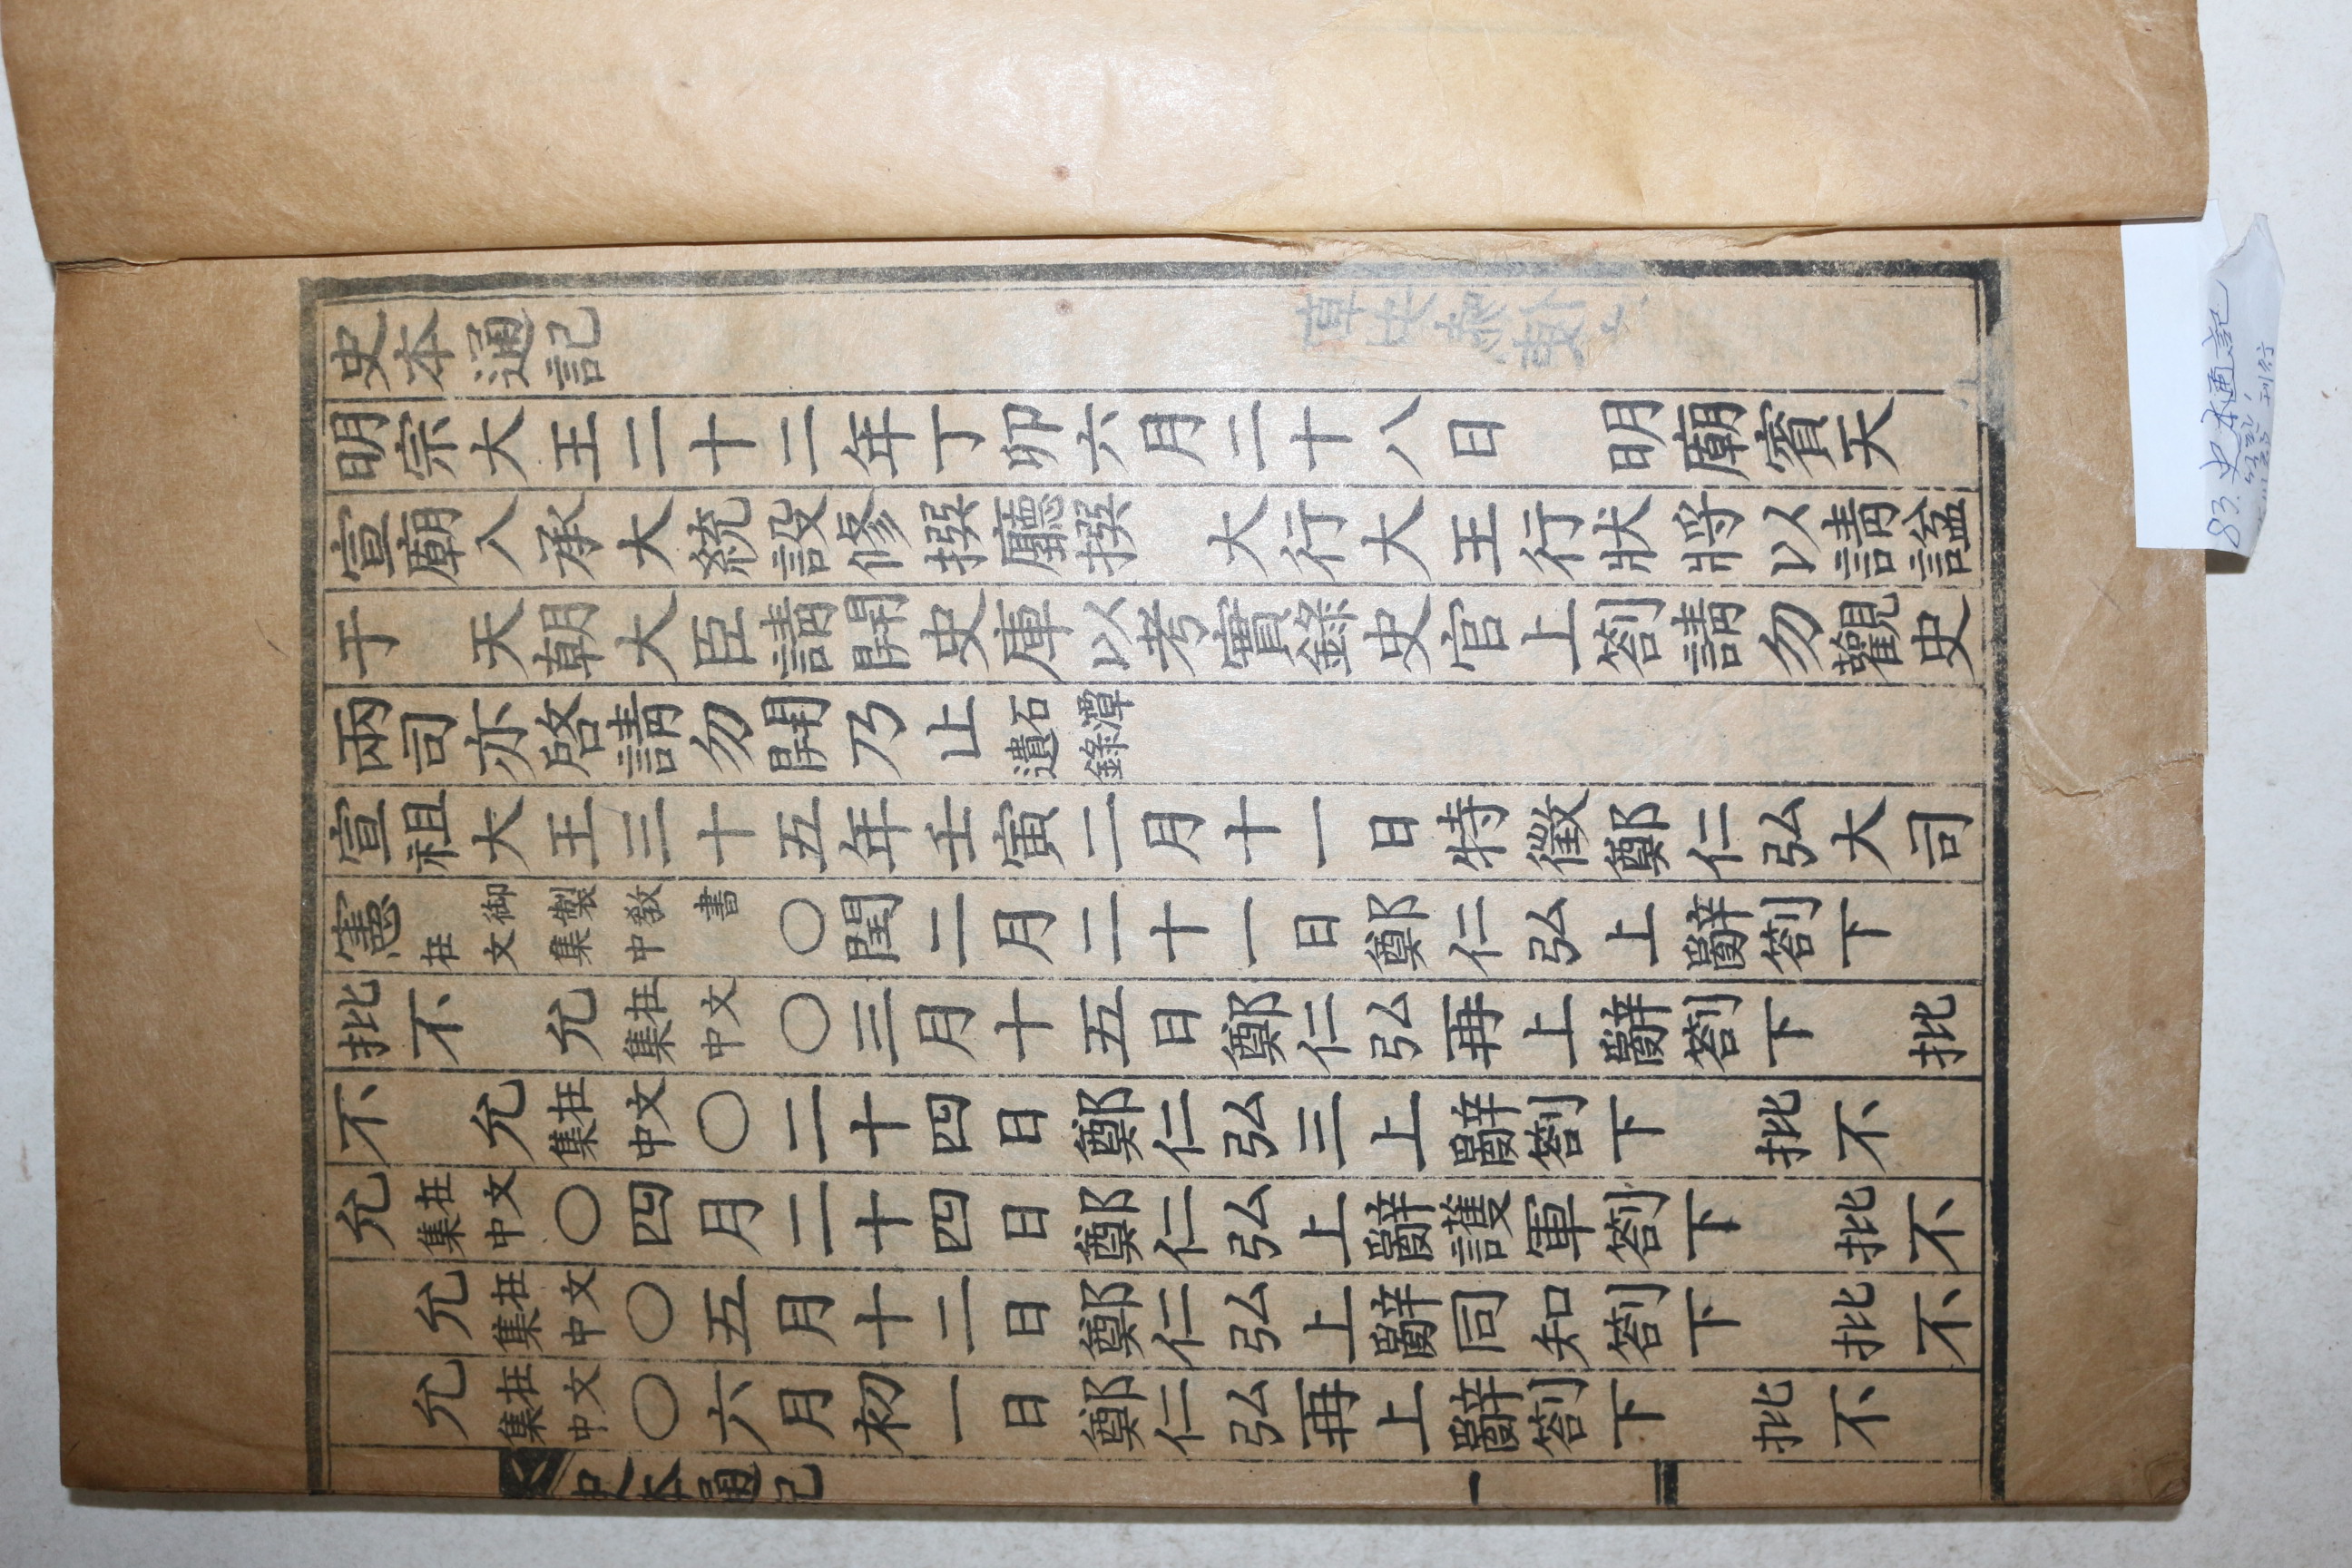 史本通記
明宗大王二十二年丁卯六月二十八日 明廟賓天
宣廟入承大統設修撰廳撰 大行大王行狀將以請諡
于 天朝大臣請開史庫以考實錄史官上箚請勿觀史
兩司亦啓請勿開乃止石潭遺錄
宣祖大王三十五年壬寅二月十一日特徵鄭仁弘大司
憲御製教書在文集中○閏二月二十一日鄭仁弘上辭箚下
批不 允在文集中○三月十五日鄭仁弘再上辭箚下 批
不 允在文集中○二十四日鄭仁弘三上辭箚下 批不
允在文集中○四月二十四日鄭仁弘上辭護軍箚下 批不
允在文集中○五月十二日鄭仁弘上辭同知箚下 批不
允在文集中○六月初一日鄭仁弘再上辭箚下 批不
史本通記 一
83. 史本通記